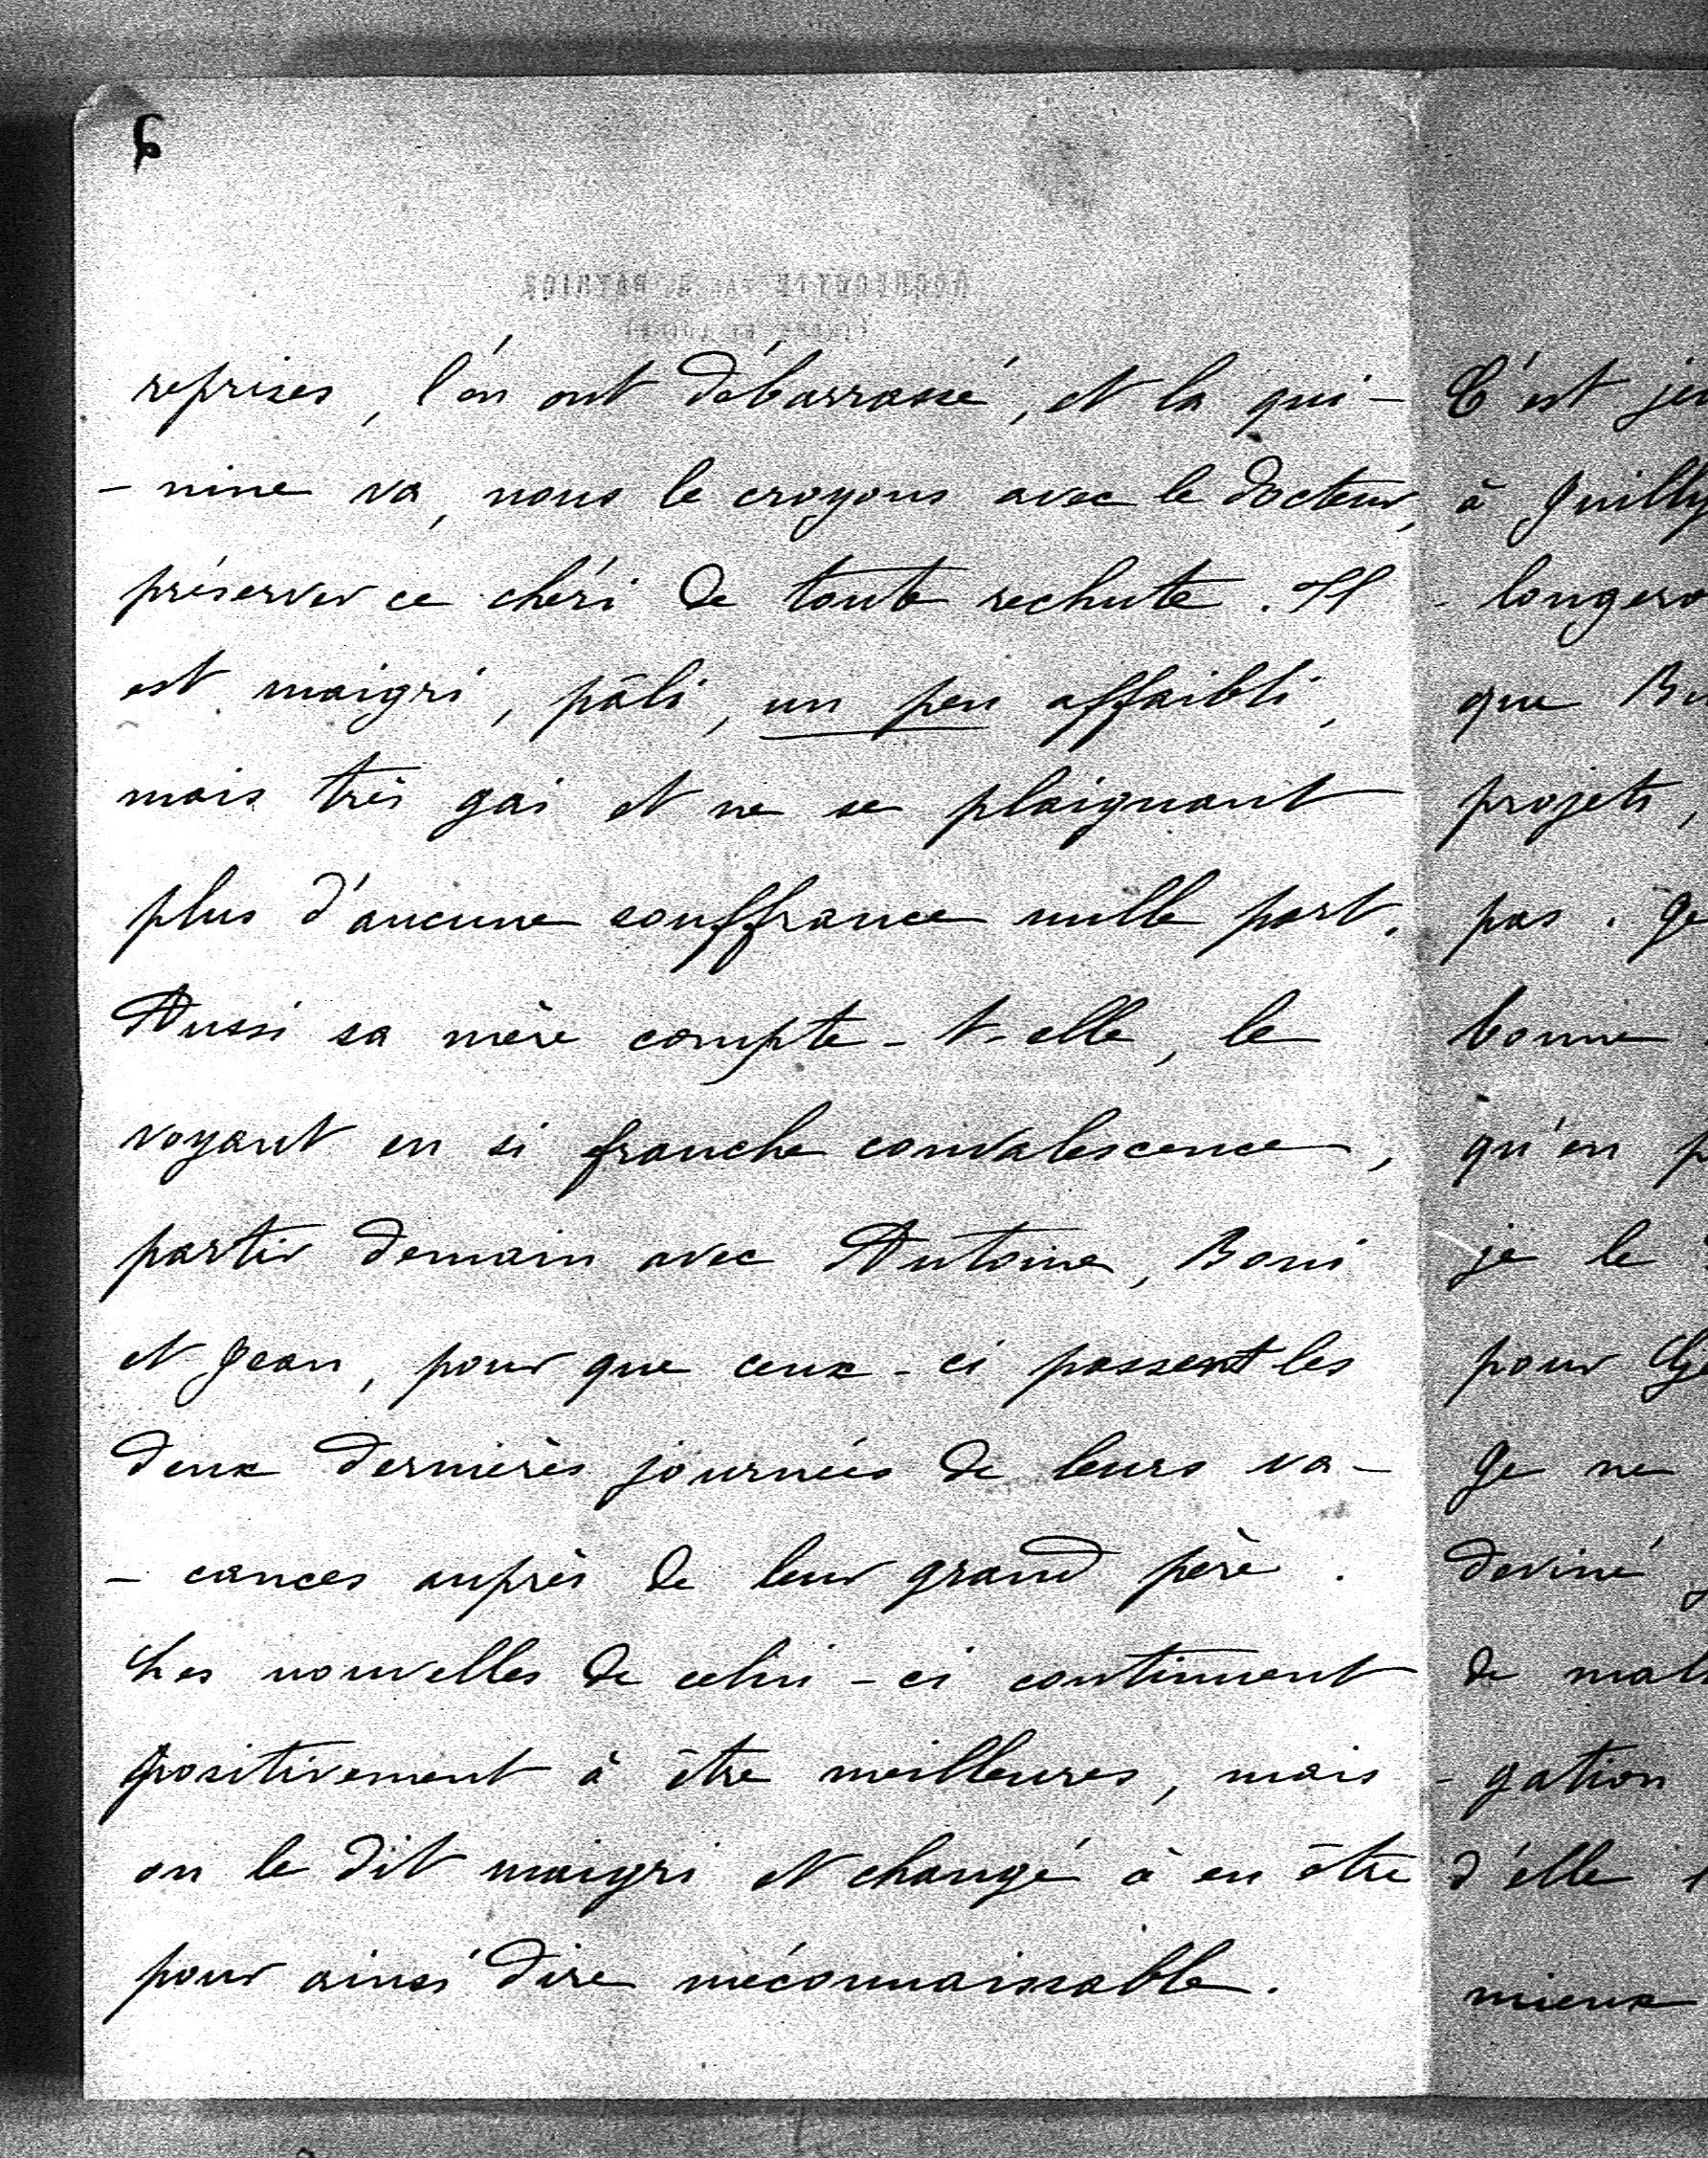 6
ROCHECOTTE PAR ST PATRICE
INDRE ET LOIRE
reprises, l'en ont débarrassé, et la qui-
-nine va, nous le croyons avec le docteur,
préserver ce chéri de toute rechute. Il
est maigri, pâli, un peu affaibli,
mais très gai et ne se plaignant
plus d'aucune souffrance nulle part.
Aussi sa mère compte-t-elle, le
voyant en si franche convalescence,
partir demain avec Antoine, Boni
et Jean, pour que ceux-ci passent les
deux dernières journées de leurs va-
-cances auprès de leur grand père.
Les nouvelles de celui-ci continuent
positivement à être meilleures, mais
on le dit maigri et changé à en être
pour ainsi dire méconnaissable.
C'est
à Juilly
- longer
que
projets,
pas. Je
bonne
qu'en
je le
pour
Je ne
deviné
de
-gation
d'elle
mieux